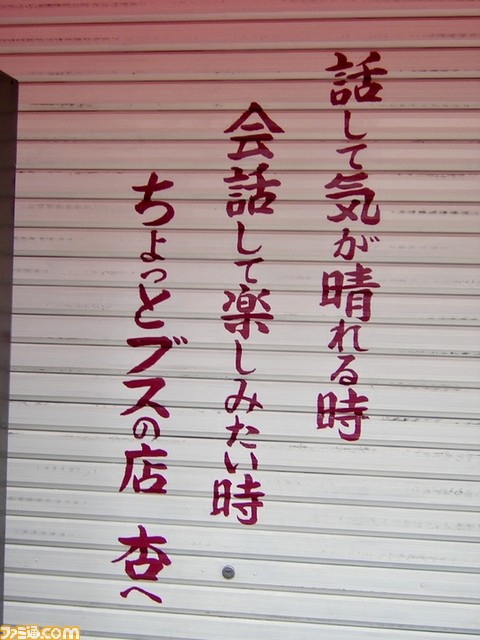 話して気が晴れる時
会話して楽しみたい時
ちょっとブスの店 杏へ
ファミ通.com